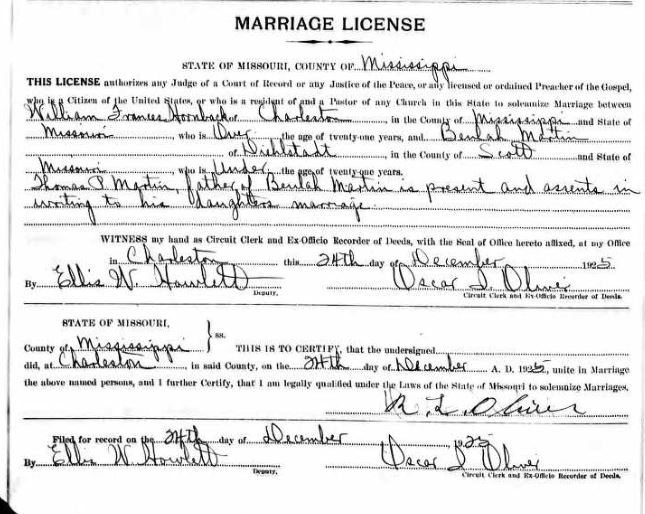 MARRIAGE LICENSE
STATE OF MISSOURI, COUNTY OF Mississippi
THIS LICENSE authorizes any Judge of a Court of Record or any Justice of the Peace, or any licensed or ordained Preacher of the Gospel,
who is a Citizen of the United States, or who is a resident of and a Pastor of any Church in this State to solemnize Marriage between
William Frances Hornback of Charleston, in the County of Mississippi and State of
Missouri, who is Over the age of twenty-one years, and Beulah Martin
of Diehlstadt, in the County of Scott and State of
Missouri who is Under the age of twenty-one years.
Thomas P. Martin, father of Beulah Martin is present and assents in
writing to his daughters marriage.
WITNESS my hand as Circuit Clerk and Ex-Officio Recorder of Deeds, with the Seal of Office hereto affixed, at my Office
in Charleston this 24th day of December 1925
By Ellis W. Howlett Oscar J. Oliver
Deputy. Circuit Clerk and Ex-Officio Recorder of Deeds.
STATE OF MISSOURI,
County of Mississippi } ss. THIS IS TO CERTIFY, that the undersigned
did, at Charleston in said County, on the 24th day of December A. D. 1925, unite in Marriage
the above named persons, and I further Certify, that I am legally qualified under the Laws of the State of Missouri to solemnize Marriages.
R. L. Oliver
Filed for record on the 24th day of December, 1925
By Ellis W Howlett Oscar J. Oliver
Deputy. Circuit Clerk and Ex-Officio Recorder of Deeds.